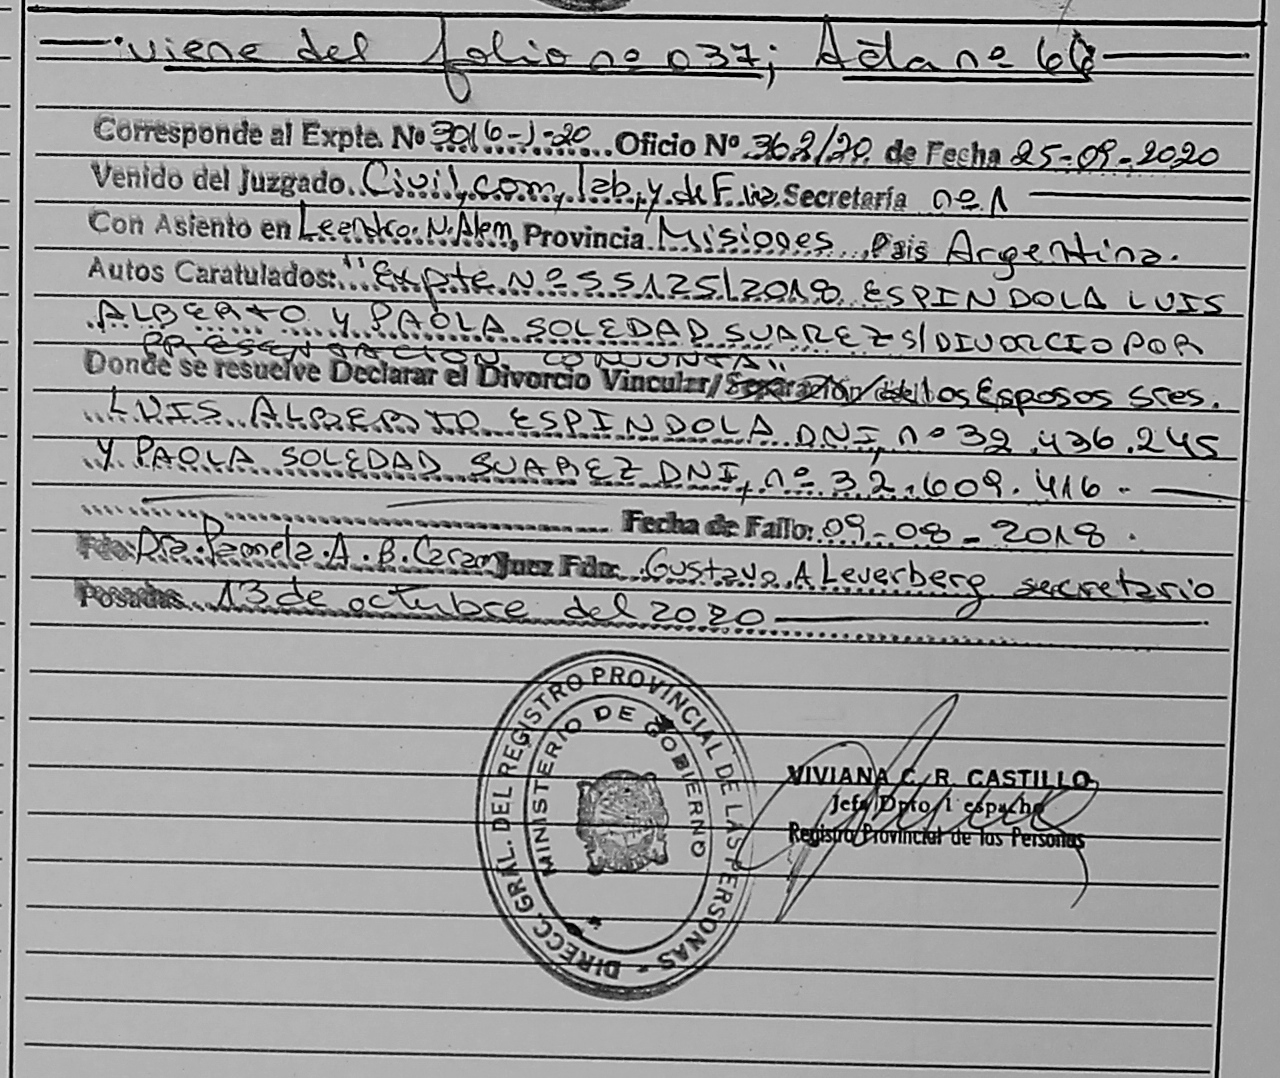 viene del folio nº 037; Acta nº 66
Corresponde al Expte. Nº 3016-J-20 Oficio Nº 362/20 de Fecha 25-09-2020
Venido del Juzgado Civil, com, lab, y de Flia. Secretaría nº 1
Con Asiento en Leandro. N. Alem, Provincia Misiones, Pais Argentina.
Autos Caratulados: "Expte Nº 55125/2018 ESPINDOLA LUIS
ALBERTO Y PAOLA SOLEDAD SUAREZ S/DIVORCIO POR
PRESENTACION CONJUNTA"
Donde se resuelve Declarar el Divorcio Vincular/ los Esposos Sres.
LUIS ALBERTO ESPINDOLA DNI, nº 32.436.245
Y PAOLA SOLEDAD SUAREZ DNI, nº 32.609.416.
Fecha de Fallo: 09-08-2018.
Fdo: Dra. Pamela. A. B. Juez Fdo: Gustavo A Leverberg secretario
Posadas 13 de octubre del 2020
DIRECC. GRAL. DEL REGISTRO PROVINCIAL DE LAS PERSONAS -
MINISTERIO DE GOBIERNO
VIVIANA C. R. CASTILLO
Jefa Dpto.
Registro Provincial de las Personas